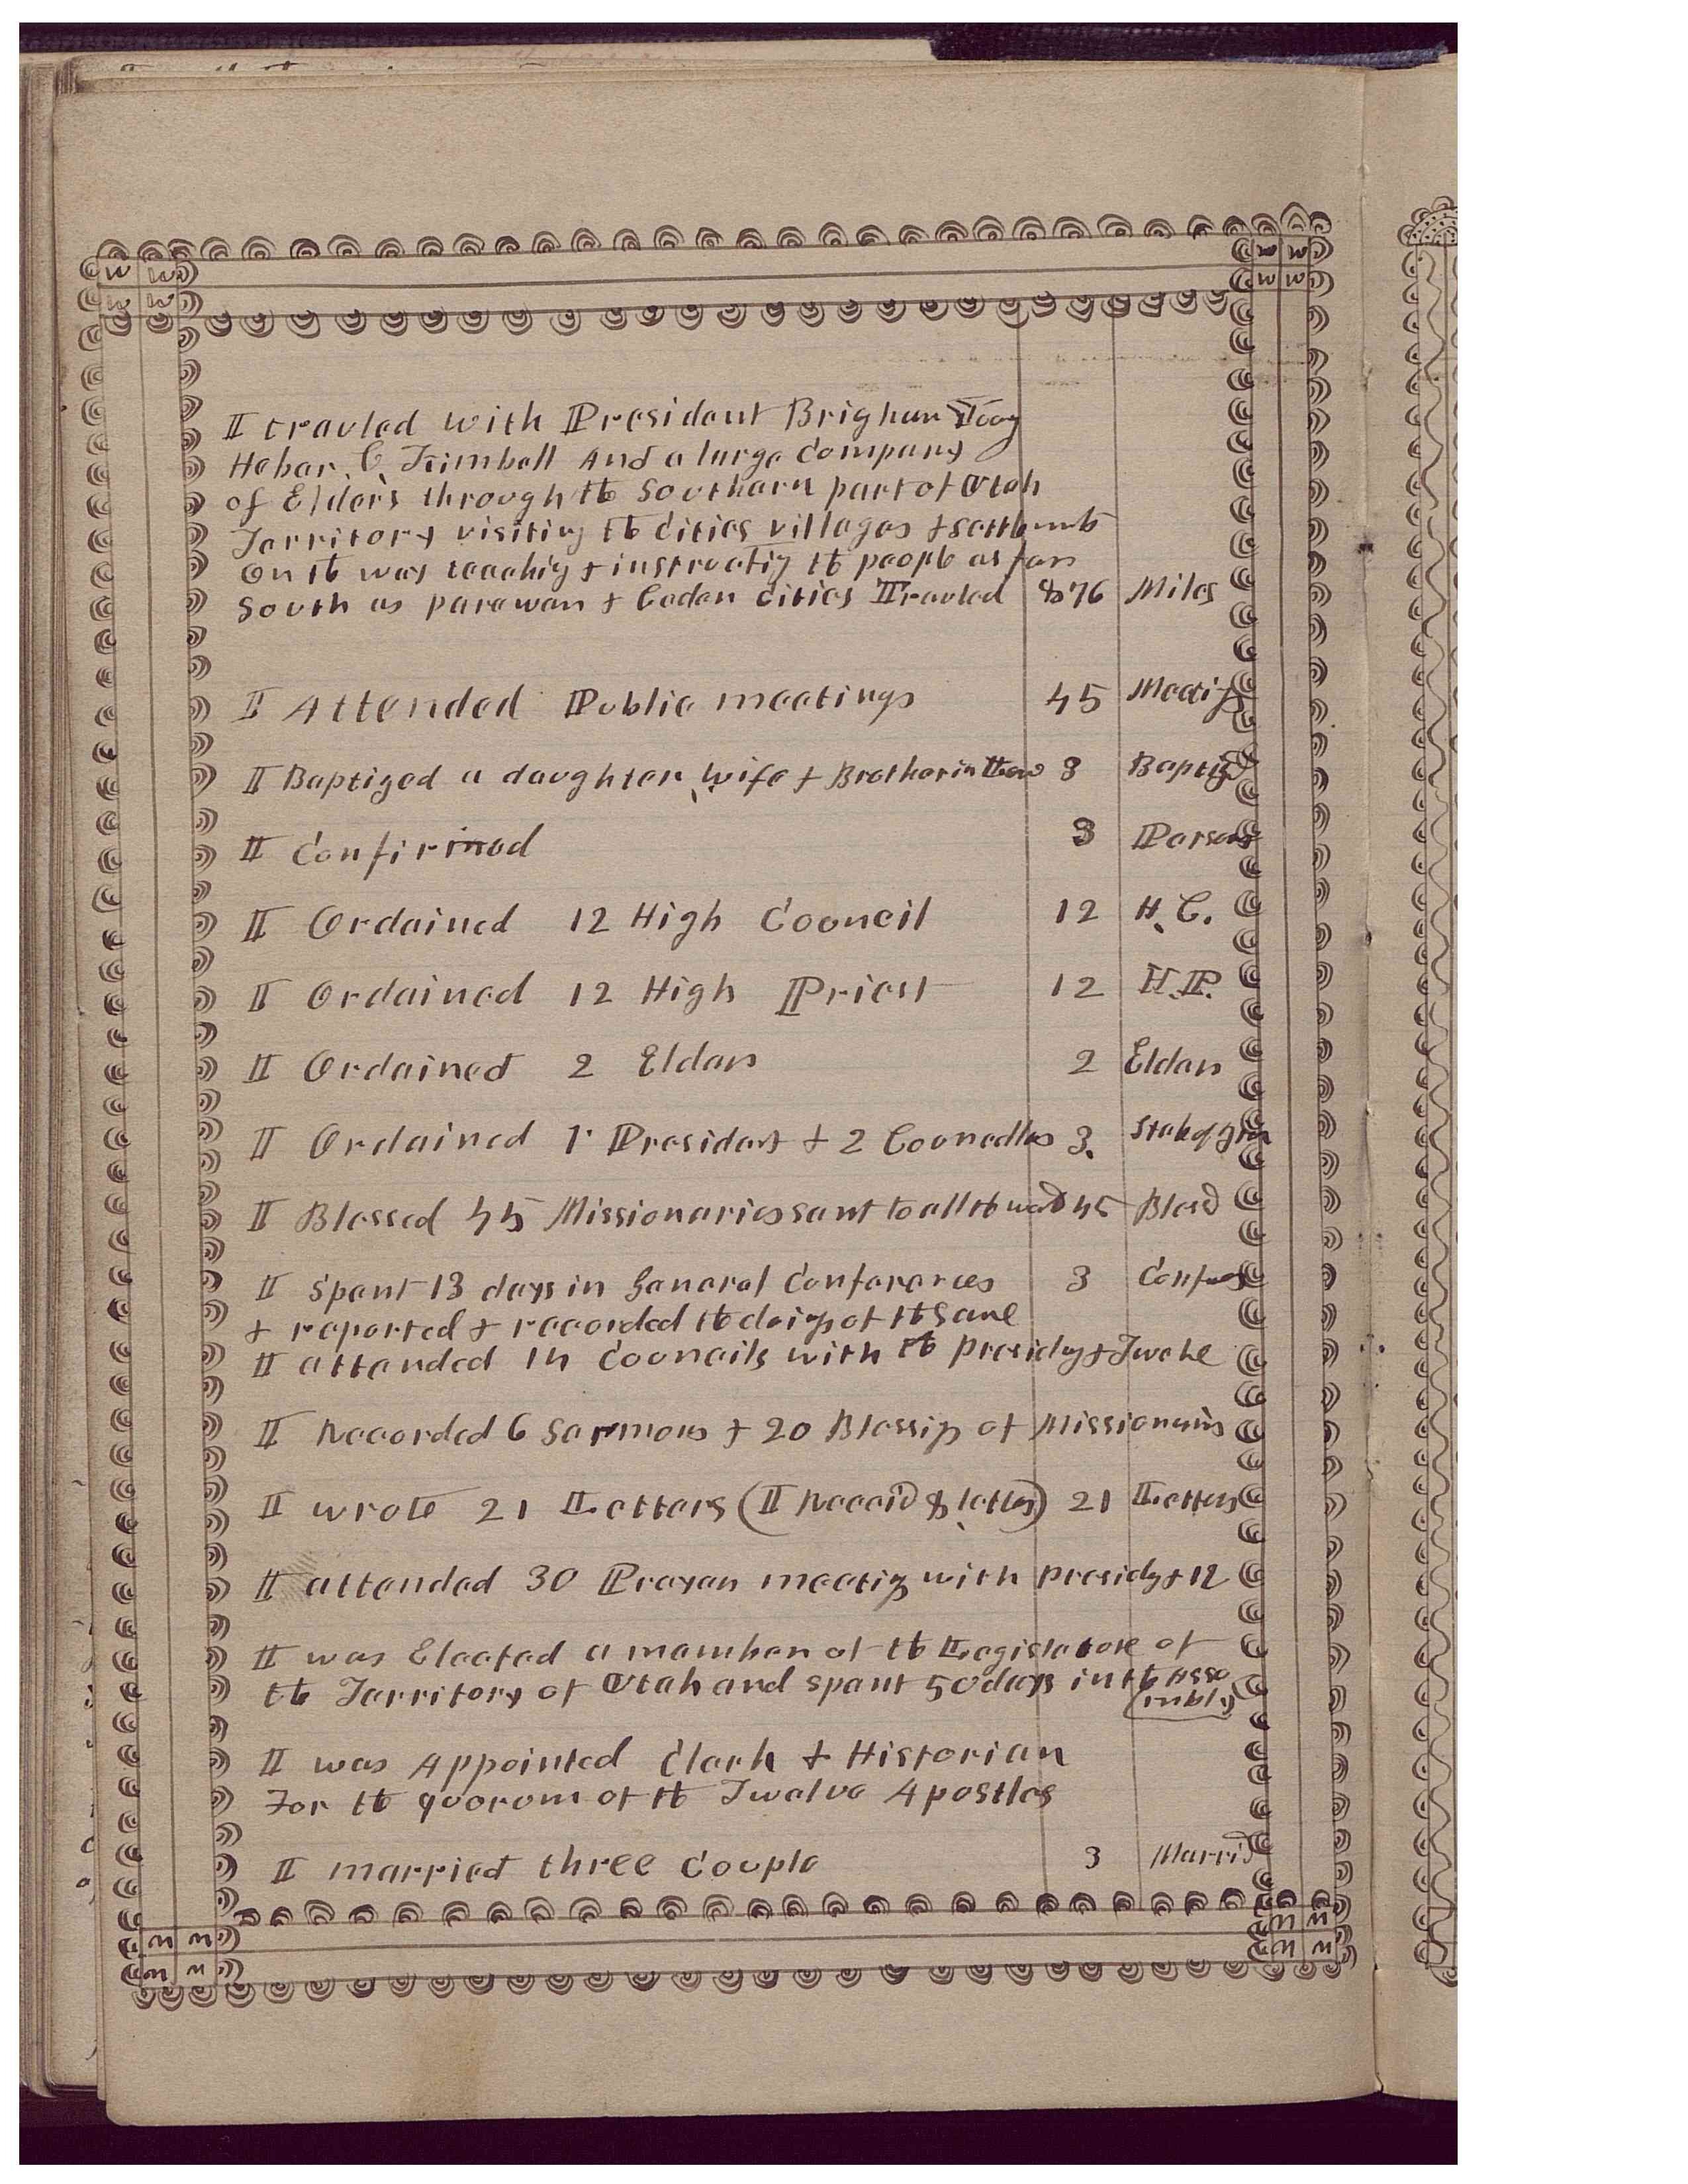 W W W W
W W W W
I travled with President Brigham Young
Heber C. Kimball And a large Company
of Elders through the Southern part of Utah
Territory visiting the cities villages & settlemts
on the way teachig & instructig the people as far
South as parawan & Cedar Cities I Travled 876 Miles
I Attended Public meetings 45 Meetigs
I Baptized a daughter, wife & Brother in Law 3 Baptized
I Confirmed 3 Persons
I Ordained 12 High Council 12 H. C.
I Ordained 12 High Priest 12 H. P.
I Ordained 2 Elders 2 Elders
I Ordained 1 President & 2 Councellors 3. Stake of Zion
I Blessed 45 Missionaries sent to all the world 45 Blessd
I Spent 13 days in General Conferences 3 Confers
& reported & recorded the doings of the Same
I attended 14 Councils with the presidey & Twelve
I Recorded 6 Sermons & 20 Blessigs of Missionaries
I wrote 21 Letters (I Receid 8 letters) 21 Letters
I attended 30 Prayer meetigs with presidy & 12
I was Elected a member of the Legislature of
the Territory of Utah and spent 50 days in the Asse
mbly
I was Appointed Clerk & Historian
For the quorum of the Twelve Apostles
I married three Couple 3 Marrid
W W W W
W W W W